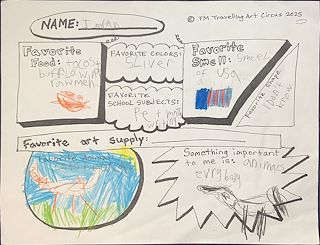 NAME: Inman
© TM Travelling Art Circus 2025
Favorite
Food: tacos
buffalo wing
raw meh
FAVORITE COLORS:
SLiver
FAVORITE
SCHOOL SUBJECTS:
Pe + math
Favorite
Smell: Smell
of USA
air
Favorite Shape
Don't
know
Favorite art supply:
Favorite Animal
Something important
to me is: animals
evrybody